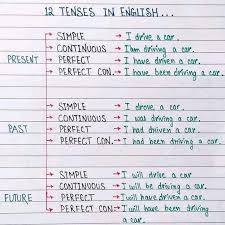 12 TENSES IN ENGLISH...
PRESENT
SIMPLE → I drive a car.
CONTINUOUS → I am driving a car.
PERFECT → I have driven a car.
PERFECT CON. → I have been driving a car.
PAST
SIMPLE → I drove a car.
CONTINUOUS → I was driving a car.
PERFECT → I had driven a car.
PERFECT CON. → I had been driving a car.
FUTURE
SIMPLE → I will drive a car.
CONTINUOUS → I will be driving a car.
PERFECT → I will have driven a car.
PERFECT CON. → I will have been driving
a car.